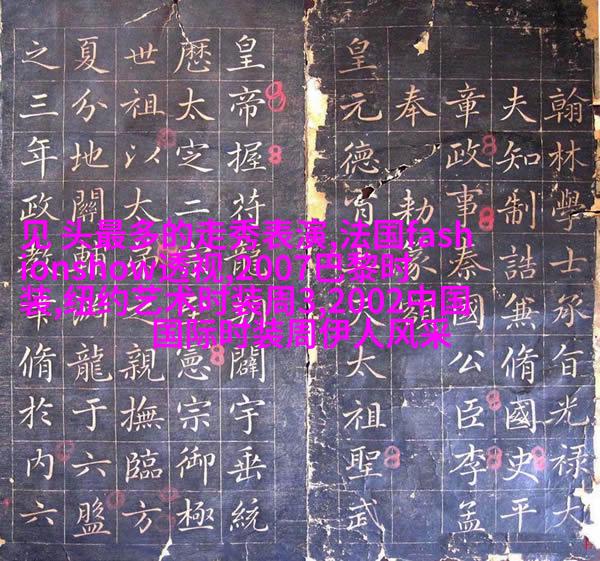 见 头最多的走秀表演,法国fash
ionshow透视,2007巴黎时
装,纽约艺术时装周3,2002中国
国际时装周伊人风采
翰林學士承旨光祿大
夫知制誥兼脩國史平
章政事秦國公臣李孟
奉勅篆額
皇元德胄太祖聖武
皇帝握符龍闢宇垂統
厯太定二憲宗御極
世祖以太親撫臨方
夏分地關龍于六盤
之三年政脩於内六